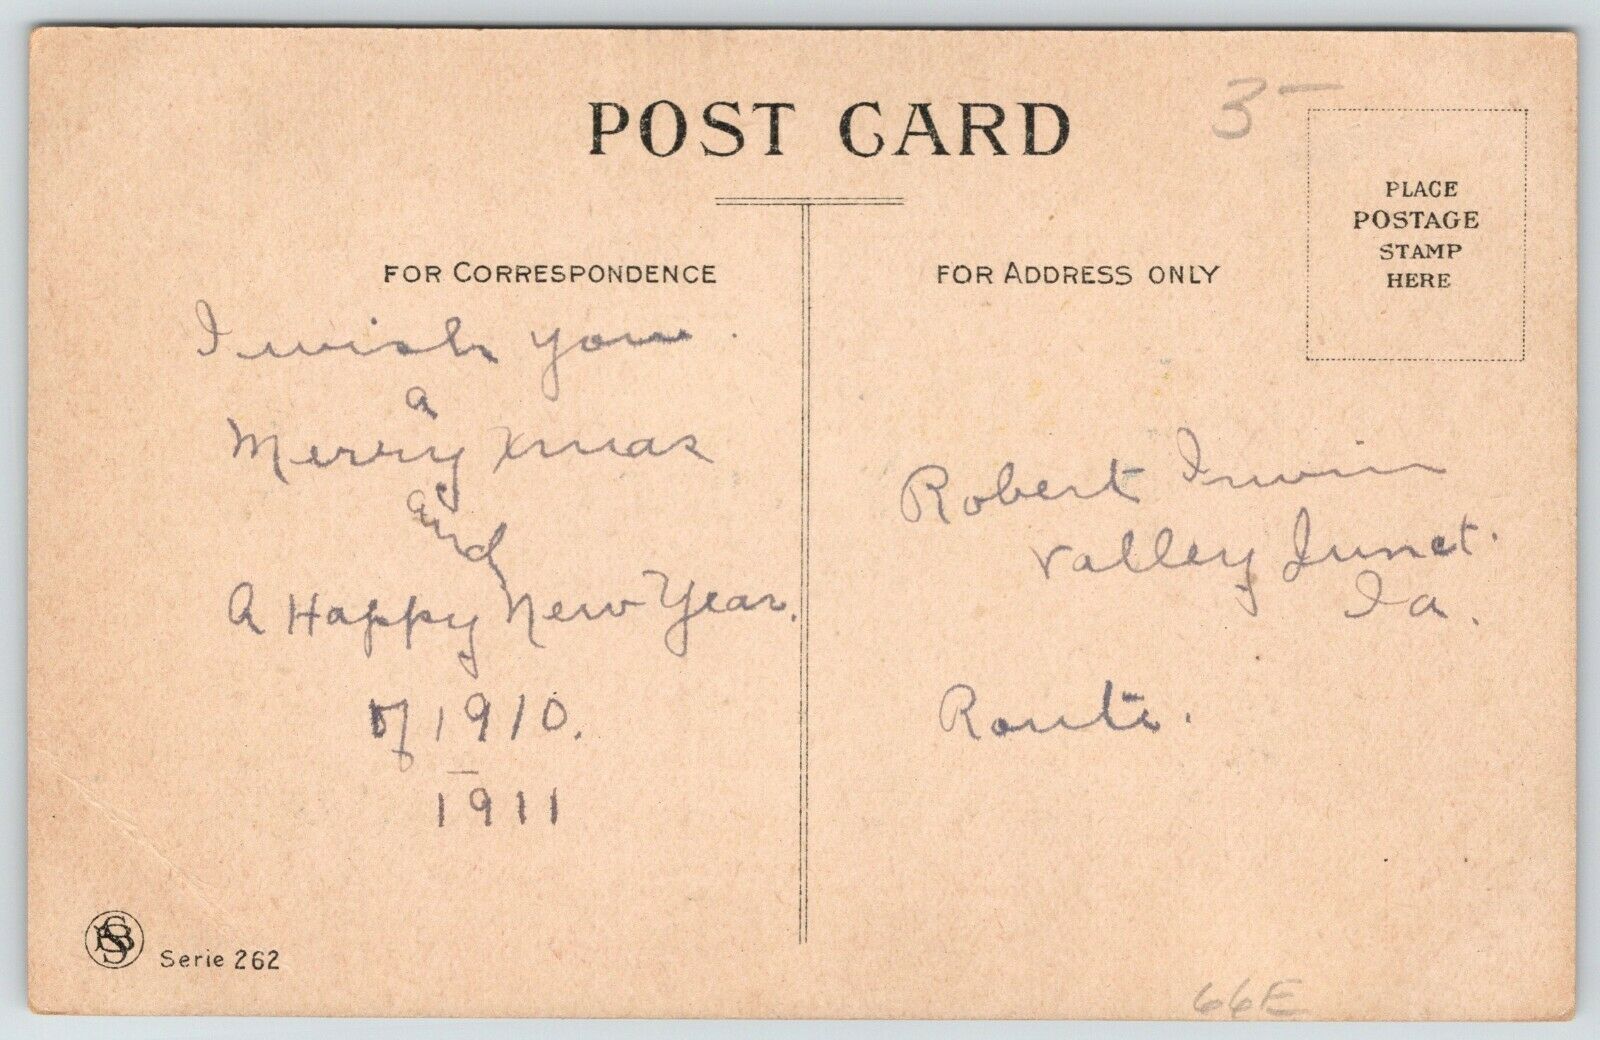 POST CARD
3-
PLACE
POSTAGE
STAMP
HERE
FOR CORRESPONDENCE
I wish you.
a
Merry Xmas
and
A Happy New Year.
of 1910.
1911
Serie 262
FOR ADDRESS ONLY
Robert Irwin
Valley Junct.
Ia.
Route.
66E